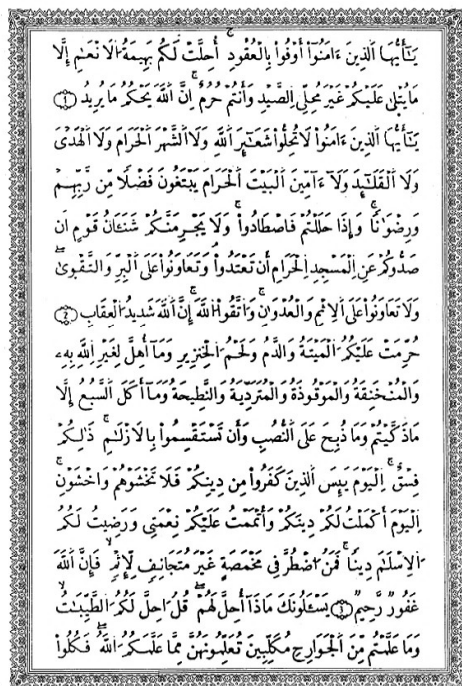 يَٰٓأَيُّهَا اَ۬لذِينَ ءَامَنُوٓاْ أَوْفُواْ بِالْعُقُودِۖ أُحِلَّتْ لَكُم بَهِيمَةُ اُ۬لَانْعَٰمِ إِلَّا
مَا يُتْلَىٰ عَلَيْكُمْ غَيْرَ مُحِلِّے اِ۬لصَّيْدِ وَأَنتُمْ حُرُمٌۖ اِنَّ اَ۬للَّهَ يَحْكُمُ مَا يُرِيدُ
يَٰٓأَيُّهَا اَ۬لذِينَ ءَامَنُواْ لَا تُحِلُّواْ شَعَٰٓئِرَ اَ۬للَّهِ وَلَا اَ۬لشَّهْرَ اَ۬لْحَرَامَ وَلَا اَ۬لْهَدْىَ
وَلَا اَ۬لْقَلَٰٓئِدَ وَلَآ ءَآمِّينَ اَ۬لْبَيْتَ اَ۬لْحَرَامَ يَبْتَغُونَ فَضْلًا مِّن رَّبِّهِمْ
وَرِضْوَٰنًاۖ وَإِذَا حَلَلْتُمْ فَاصْطَادُواْۖ وَلَا يَجْرِمَنَّكُمْ شَنَـَٔانُ قَوْمٍ اَن
صَدُّوكُمْ عَنِ اِ۬لْمَسْجِدِ اِ۬لْحَرَامِ أَن تَعْتَدُواْۘ وَتَعَاوَنُواْ عَلَى اَ۬لْبِرِّ وَالتَّقْوَىٰۖ
وَلَا تَعَاوَنُواْ عَلَى اَ۬لِاثْمِ وَالْعُدْوَٰنِۖ وَاتَّقُواْ اُ۬للَّهَۖ إِنَّ اَ۬للَّهَ شَدِيدُ اُ۬لْعِقَابِ
حُرِّمَتْ عَلَيْكُمُ اُ۬لْمَيْتَةُ وَالدَّمُ وَلَحْمُ اُ۬لْخِنزِيرِ وَمَآ أُهِلَّ لِغَيْرِ اِ۬للَّهِ بِهِۦ
وَالْمُنْخَنِقَةُ وَالْمَوْقُوذَةُ وَالْمُتَرَدِّيَةُ وَالنَّطِيحَةُ وَمَآ أَكَلَ اَ۬لسَّبُعُ إِلَّا
مَا ذَكَّيْتُمْ وَمَا ذُبِحَ عَلَى اَ۬لنُّصُبِ وَأَن تَسْتَقْسِمُواْ بِالَازْلَٰمِۖ ذَٰلِكُمْ
فِسْقٌۖ اِ۬لْيَوْمَ يَئِسَ اَ۬لذِينَ كَفَرُواْ مِن دِينِكُمْ فَلَا تَخْشَوْهُمْ وَاخْشَوْنِۖ
اِ۬لْيَوْمَ أَكْمَلْتُ لَكُمْ دِينَكُمْ وَأَتْمَمْتُ عَلَيْكُمْ نِعْمَتِے وَرَضِيتُ لَكُمُ
اُ۬لِاسْلَٰمَ دِينًاۖ فَمَنُ اُ۟ضْطُرَّ فِے مَخْمَصَةٍ غَيْرَ مُتَجَانِفٍ لِّإِثْمٍۙ فَإِنَّ اَ۬للَّهَ
غَفُورٌ رَّحِيمٌ يَسْـَٔلُونَكَ مَاذَآ أُحِلَّ لَهُمْۖ قُلُ اُحِلَّ لَكُمُ اُ۬لطَّيِّبَٰتُۙ
وَمَا عَلَّمْتُم مِّنَ اَ۬لْجَوَارِحِ مُكَلِّبِينَ تُعَلِّمُونَهُنَّ مِمَّا عَلَّمَكُمُ اُ۬للَّهُۖ فَكُلُواْ